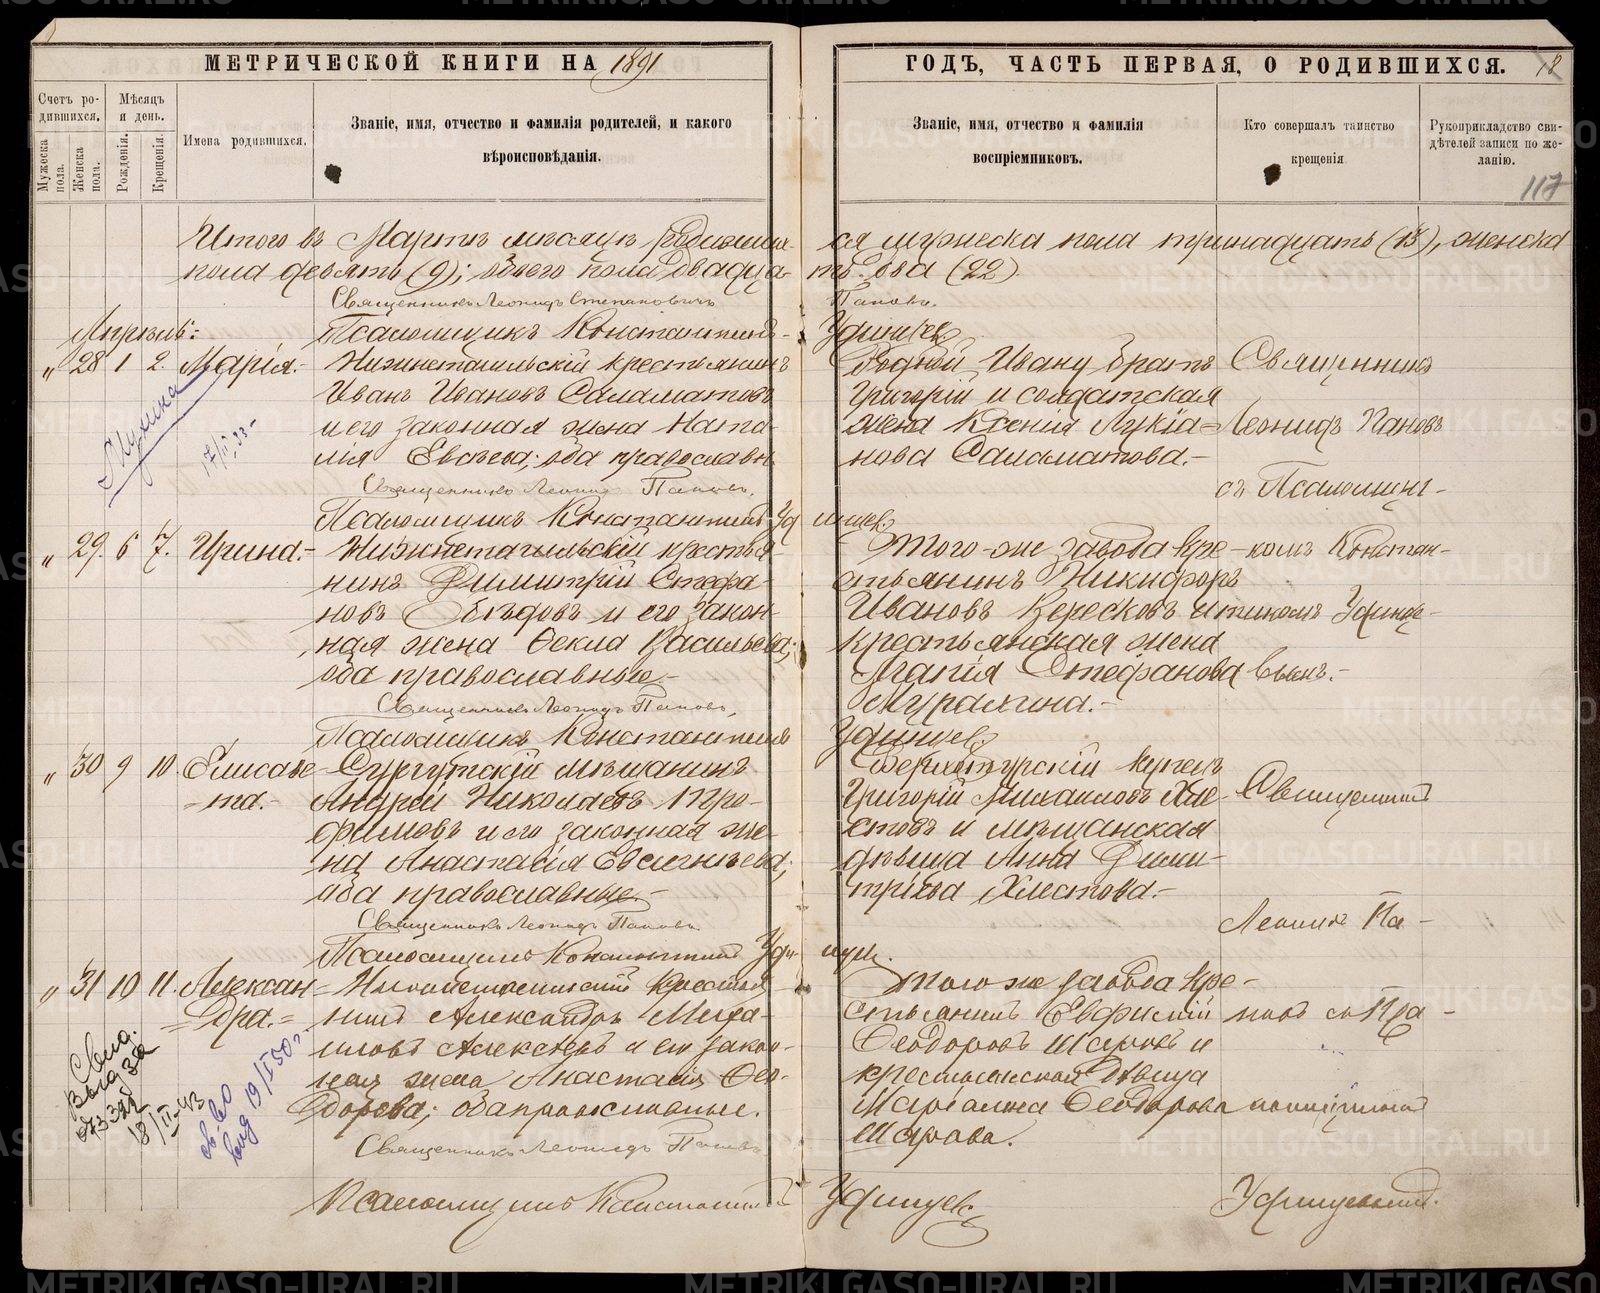 МЕТРИЧЕСКОЙ КНИГИ НА 1891
ГОДЪ, ЧАСТЬ ПЕРВАЯ, О РОДИВШИХСЯ. 18
Счетъ родившихся.
Мужеска пола.
Женска пола.
Мѣсяцъ и день.
Рожденія.
Крещенія.
Имена родившихся.
Званіе, имя, отчество и фамилія родителей, и какого
вѣроисповѣданія.
Званіе, имя, отчество и фамилія
воспріемниковъ.
Кто совершалъ таинство
крещенія
Рукоприкладство сви-
дѣтелей записи по же-
ланію.
117
Итого въ Мартѣ мѣсяцѣ родивши-
ся мужеска пола тринадцать (13), женска
пола девять (9); обоего пола двадца-
ть два (22)
Священникъ Леонидъ Степановичъ
Поповъ.
Апрѣль:
Псаломщикъ Константинъ
Удинцев
" 28 1 2. Марія.-
Нижнетагильскій крестьянинъ
Иванъ Ивановъ Саламатовъ
и его законная жена Ната-
лія Евсѣева; оба православн
Родной Ивану братъ
Григорій и солдатская
жена Ксенія Лукіа-
нова Саламатова.-
Священникъ
Леонидъ Поповъ
съ Псаломщи-
17/II 33-
Священникъ Леонид Поповъ.
Псаломщикъ Константинъ Уд инцев.
" 29. 6 7. Ирина.-
Нижнетагильскій крестья-
нинъ Димитрій Стефа-
новъ и его закон-
ная жена Ѳекла Васильева;
оба православные.-
Того-же завода кре-
стьянинъ Никифоръ
Ивановъ Вересковъ и
крестьянская жена
Агапія Стефанова
-комъ Констан-
тиномъ Удинце-
вымъ.-
Священникъ Леонидъ Поповъ,
Псаломщикъ Константинъ
Удинцев
" 30 9 10. Елисаве-
-та.-
Сургутскій мѣщанинъ
Андрей Николаевъ Тро-
фимовъ и его законная же-
на Анастасія Евгеніева;
оба православные.-
Верхотурскій купецъ
Григорій Михаиловъ Хле-
стовъ и мѣщанская
дѣвица Анна Дими-
тріева Хлестова.-
Священник
Леонидъ По-
Священникъ Леонидъ Поповъ.
Псаломщикъ Константин Уди- нцев.
" 31 10 11. Алексан-
=дра.=
Нижнетагильскій крестья-
нинъ Александръ Миха-
иловъ Алексѣевъ и его закон-
ная жена Анастасія Ѳео-
дорова; оба православные.
Того же завода кре-
стьянинъ Евфимій
Ѳеодоровъ Шаровъ и
крестьянская дѣвица
Маріамна Ѳеодорова
Шарова.
Свид.
выд за
18/III-43
выд 19/I 50г.
Священникъ Леонидъ Поповъ
Псаломщикъ Константинъ
Удинцев
Удинцевымъ.